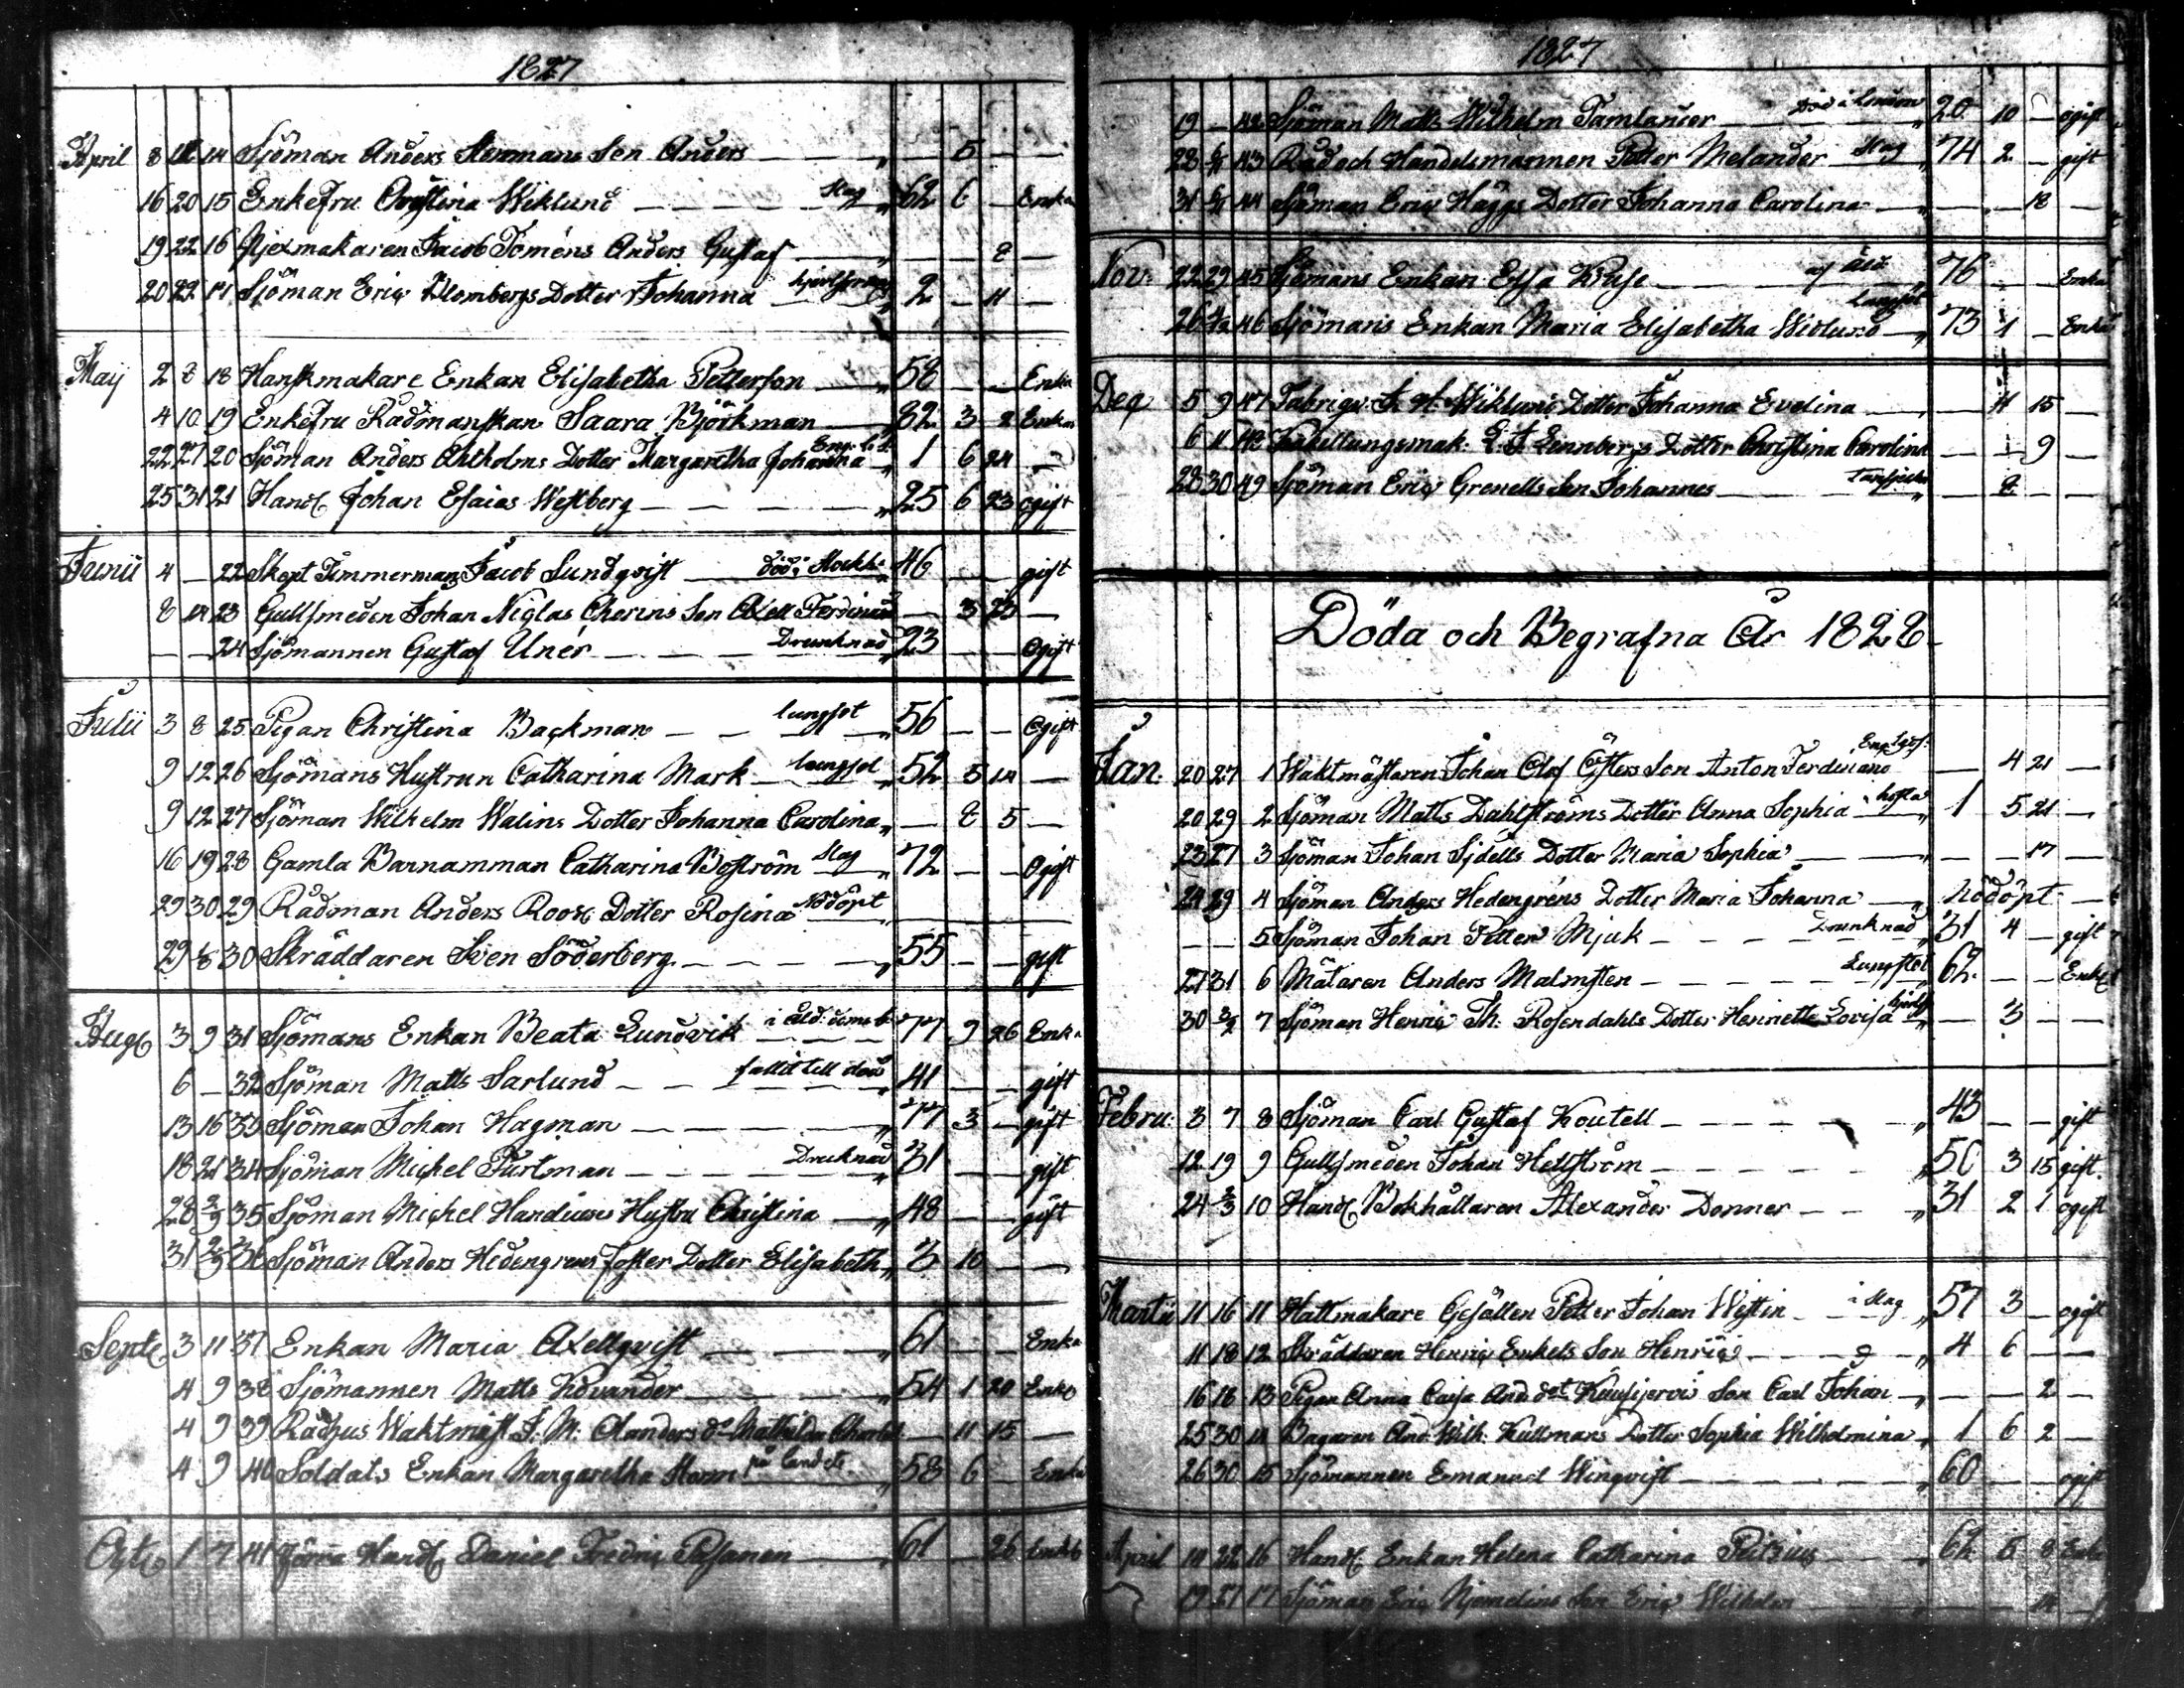 1827
April 8 14 Sjöman Anders Stenmans Son Anders — — „ — 5 — —
16 20 15 Enkefru Christina Wiklund — — — — slag „ 62 6 — Enka
19 22 16 Jacob Toméns Anders Gustaf — „ — — 8 —
20 22 17 Sjöman Eric Blombergs Dotter Johanna „ 2 — 11 —
Maij 2 8 18 Hanskmakare Enkan Elisabetha Petterson — „ 58 — — Enka
4 10 19 Enkefru Rådmanskan Saara Björkman — „ 82 3 2 Enka
22 27 20 Sjöman Anders Ahlholms Dotter Margaretha Johanna „ 1 6 24 —
25 31 21 Handl Johan Esaias Westberg — — — — — „ 25 6 23 ogift
Junii 4 — 22 Skept Timmerman Jacob Sundqvist — död i Stockh. „ 46 — — gift
8 14 23 Gullsmeden Johan Niclas Cherins Son Axell Ferdinand — 3 23 —
— — 24 Sjömannen Gustaf Unér — — — — Drunknad „ 23 — — Ogift
Julii 3 8 25 Pigan Christina Backman — — lungsot „ 56 — — Ogift
9 12 26 Sjömans Hustrun Catharina Mark — lungsot „ 52 5 14 —
9 12 27 Sjöman Wilhelm Walins Dotter Johanna Carolina „ — 8 5 —
16 19 28 Gamla Barnamman Catharina Boström slag „ 72 — — Ogift
29 30 29 Rådman Anders Roos Dotter Rosina Nödöpt
29 30 Skräddaren Sven Söderberg — — — — „ 55 — — gift
Aug 3 9 31 Sjömans Enkan Beata Lundvik „ 77 9 26 Enka
6 — 32 Sjöman Matts Sarlund — — fallit till döds „ 41 — — gift
13 16 33 Sjöman Johan Hagman — — — — — „ 77 3 — gift
18 21 34 Sjöman Michel Purtman — — — Drucknad „ 31 — — gift
28 2/9 35 Sjöman Michel Hustru Christina — „ 48 — — gift
31 2/9 36 Sjöman Anders Hedengrens foster Dotter Elisabeth „ 3 10 — —
Sept 3 11 37 Enkan Maria Axellqvist — — — „ 61 — — Enka
4 9 38 Sjömannen Matts — — „ 54 1 20 Enkl
4 9 39 Rådhus Waktmäst J. M. Olanders dr Mathilda — 11 15 —
4 9 40 Soldats Enkan Margaretha Storm på landet „ 58 6 — Enka
Octo 1 7 41 Handl Daniel Fredric — „ 61 — 26 Enkl
1827
19 — 42 Sjöman Matts Wilhelm Tamlander — Död i London „ 20 10 — ogift
28 43 Råd och Handelsmannen Petter Melander — Slag „ 74 2 — gift
31 44 Sjöman Eric Häggs Dotter Johanna Carolina — „ — — 18 —
Nov 22 29 45 Sjömans Enkan Elsa Kruse — — af Åld. „ 76 — — Enka
26 46 Sjömans Enkan Maria Elisabetha Widlund — lungsot „ 73 1 — Enka
Dec 5 9 47 Fabriqu. J. H. Wiklund Dotter Johanna Evelina — 11 15 —
6 11 48 E. J. Lennbergs Dotter Christina Carolina — — 9 —
28 30 49 Sjöman Eric Grenells Son Johannes — — „ — 8 — —
Döda och Begrafna År 1828
Jan. 20 27 1 Waktmästaren Johan Olof Östers Son Anton Ferdinand — 4 21 —
20 29 2 Sjöman Matts Dahlströms Dotter Anna Sophia — hosta „ 1 5 21 —
23 27 3 Sjöman Johan Sjdells Dotter Maria Sophia — — „ — — 17 —
24 29 4 Sjöman Anders Hedengréns Dotter Maria Johanna — „ nödöpt —
— — 5 Sjöman Johan Petter Mjuk — — — Drunknad „ 31 4 — gift
27 31 6 Mätaren Anders Malmsten — — — — Lungsot „ 62 — — Enkl
30 3/2 7 Sjöman Henric Th. Rosendahls Dotter Henrietta Lovisa „ — 3 — —
Febru. 3 7 8 Sjöman Carl Gustaf Koutell — — — — „ 43 — — gift
12 19 9 Gullsmeden Johan Hellström — — — — „ 50 3 15 gift
24 2/3 10 Handl Bokhållaren Alexander Donner — — — „ 31 2 1 ogift
Martii 11 16 11 Hattmakare Gesällen Petter Johan Westin — — i slag „ 57 3 — ogift
11 18 12 Skräddaren Henric Enkels Son Henric — — — „ 4 6 — —
16 18 13 Pigan Anna Caisa And. dotr Son Carl Johan — „ — — 2 —
25 30 14 Bagaren And. Wilh. Kullmans Dotter Sophia Wilhelmina „ 1 6 2 —
26 30 15 Sjömannen Emanuel Winqvist — — — — „ 60 — — ogift
April 14 22 16 Handl Enkan Helena Catharina — — „ 62 8 Enka
19 27 17 Sjöman Eric Son Eric Wilhelm — — „ — — 14 —